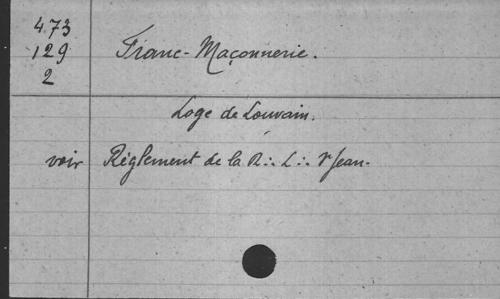 4.73
129
2
Franc-Maçonnerie.
Loge de Louvain.
voir Règlement de la R∴ L∴ St Jean.